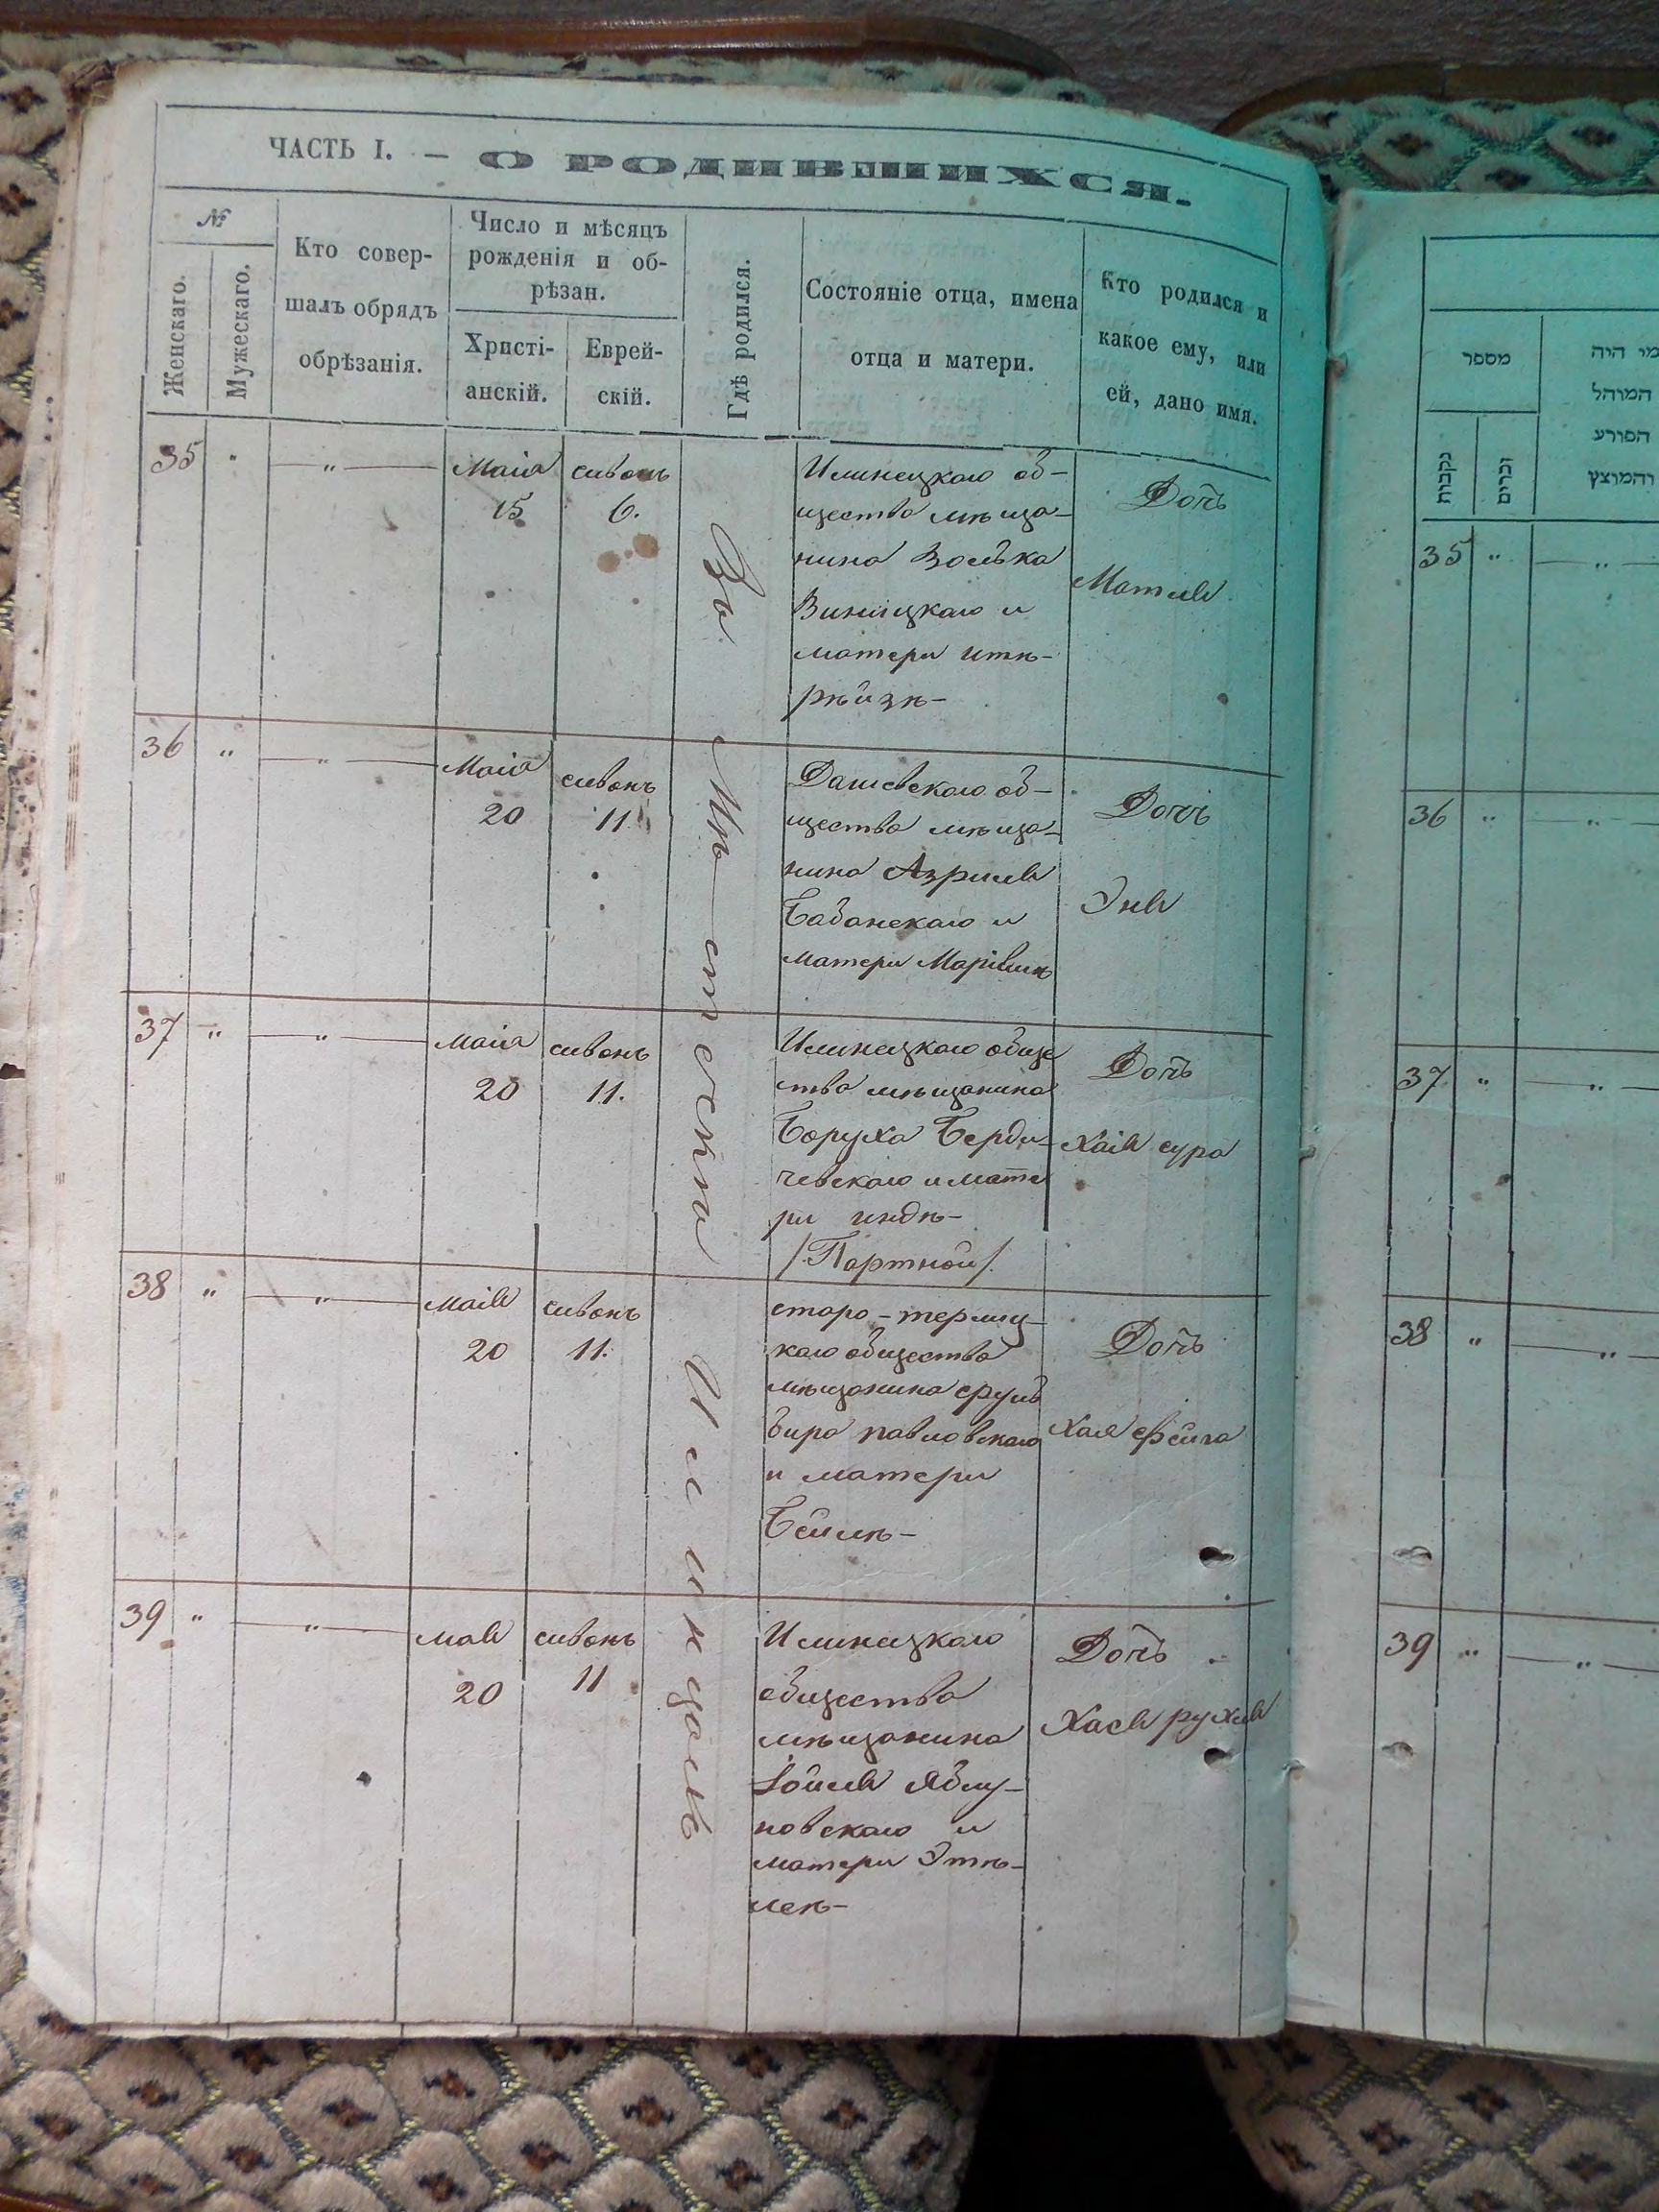 ЧАСТЬ I. — О РОДИВШИХСЯ.
№
Женскаго.
Мужескаго.
Кто совер-
шалъ обрядъ
обрѣзанія.
Число и мѣсяцъ
рожденія и об-
рѣзан.
Христі-
анскій.
Еврей-
скій.
Гдѣ родился.
Состояніе отца, имена
отца и матери.
Кто родился и
какое ему, или
ей, дано имя.
Въ Мѣстечкѣ Илинцахъ
35 " — " — Маія сивонъ
15 6.
Илинецкаго об-
щества мѣща-
нина
Виницкаго и
матери итѣ-
рѣйзѣ-
Дочь
Матля
36 " — " — Маія сивонъ
20 11.
Дашевскаго об-
щества мѣща-
нина Азриля
Бабанскаго и
матери
Дочь
Эня
37 " — " — Маія сивонъ
20 11.
Илинецкаго обще
ства мѣщанина
Боруха Берди-
чевскаго и мате
ри индѣ-
/Портной/.
Дочь
Хаія сура
38 " — " — Маія сивонъ
20 11.
старо-
каго общества
мѣщанина сруль
бира павловскаго
и матери
Бейлѣ-
Дочь
Хая Фейга
39 " — " — мая сивонъ
20 11
Илинецкаго
общества
мѣщанина
Іойля Яблу-
новскаго и
матери Этѣ-
лѣ-
Дочь
Хася рухля
מספר
נקבות
זכרים
מי היה
המוהל
הפורע
והמוצץ
35 " — " —
36 " — " —
37 " — " —
38 " — " —
39 " — " —